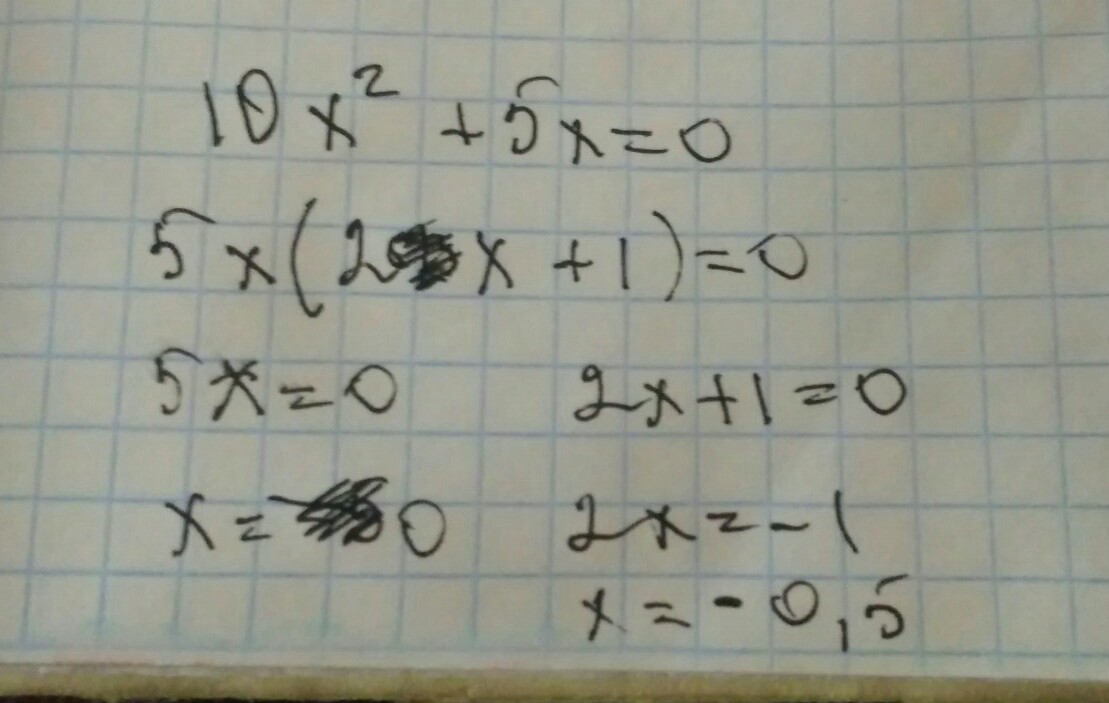 10x² + 5x = 0
5x(2x + 1) = 0
5x = 0 2x + 1 = 0
x = 0 2x = -1
x = -0,5